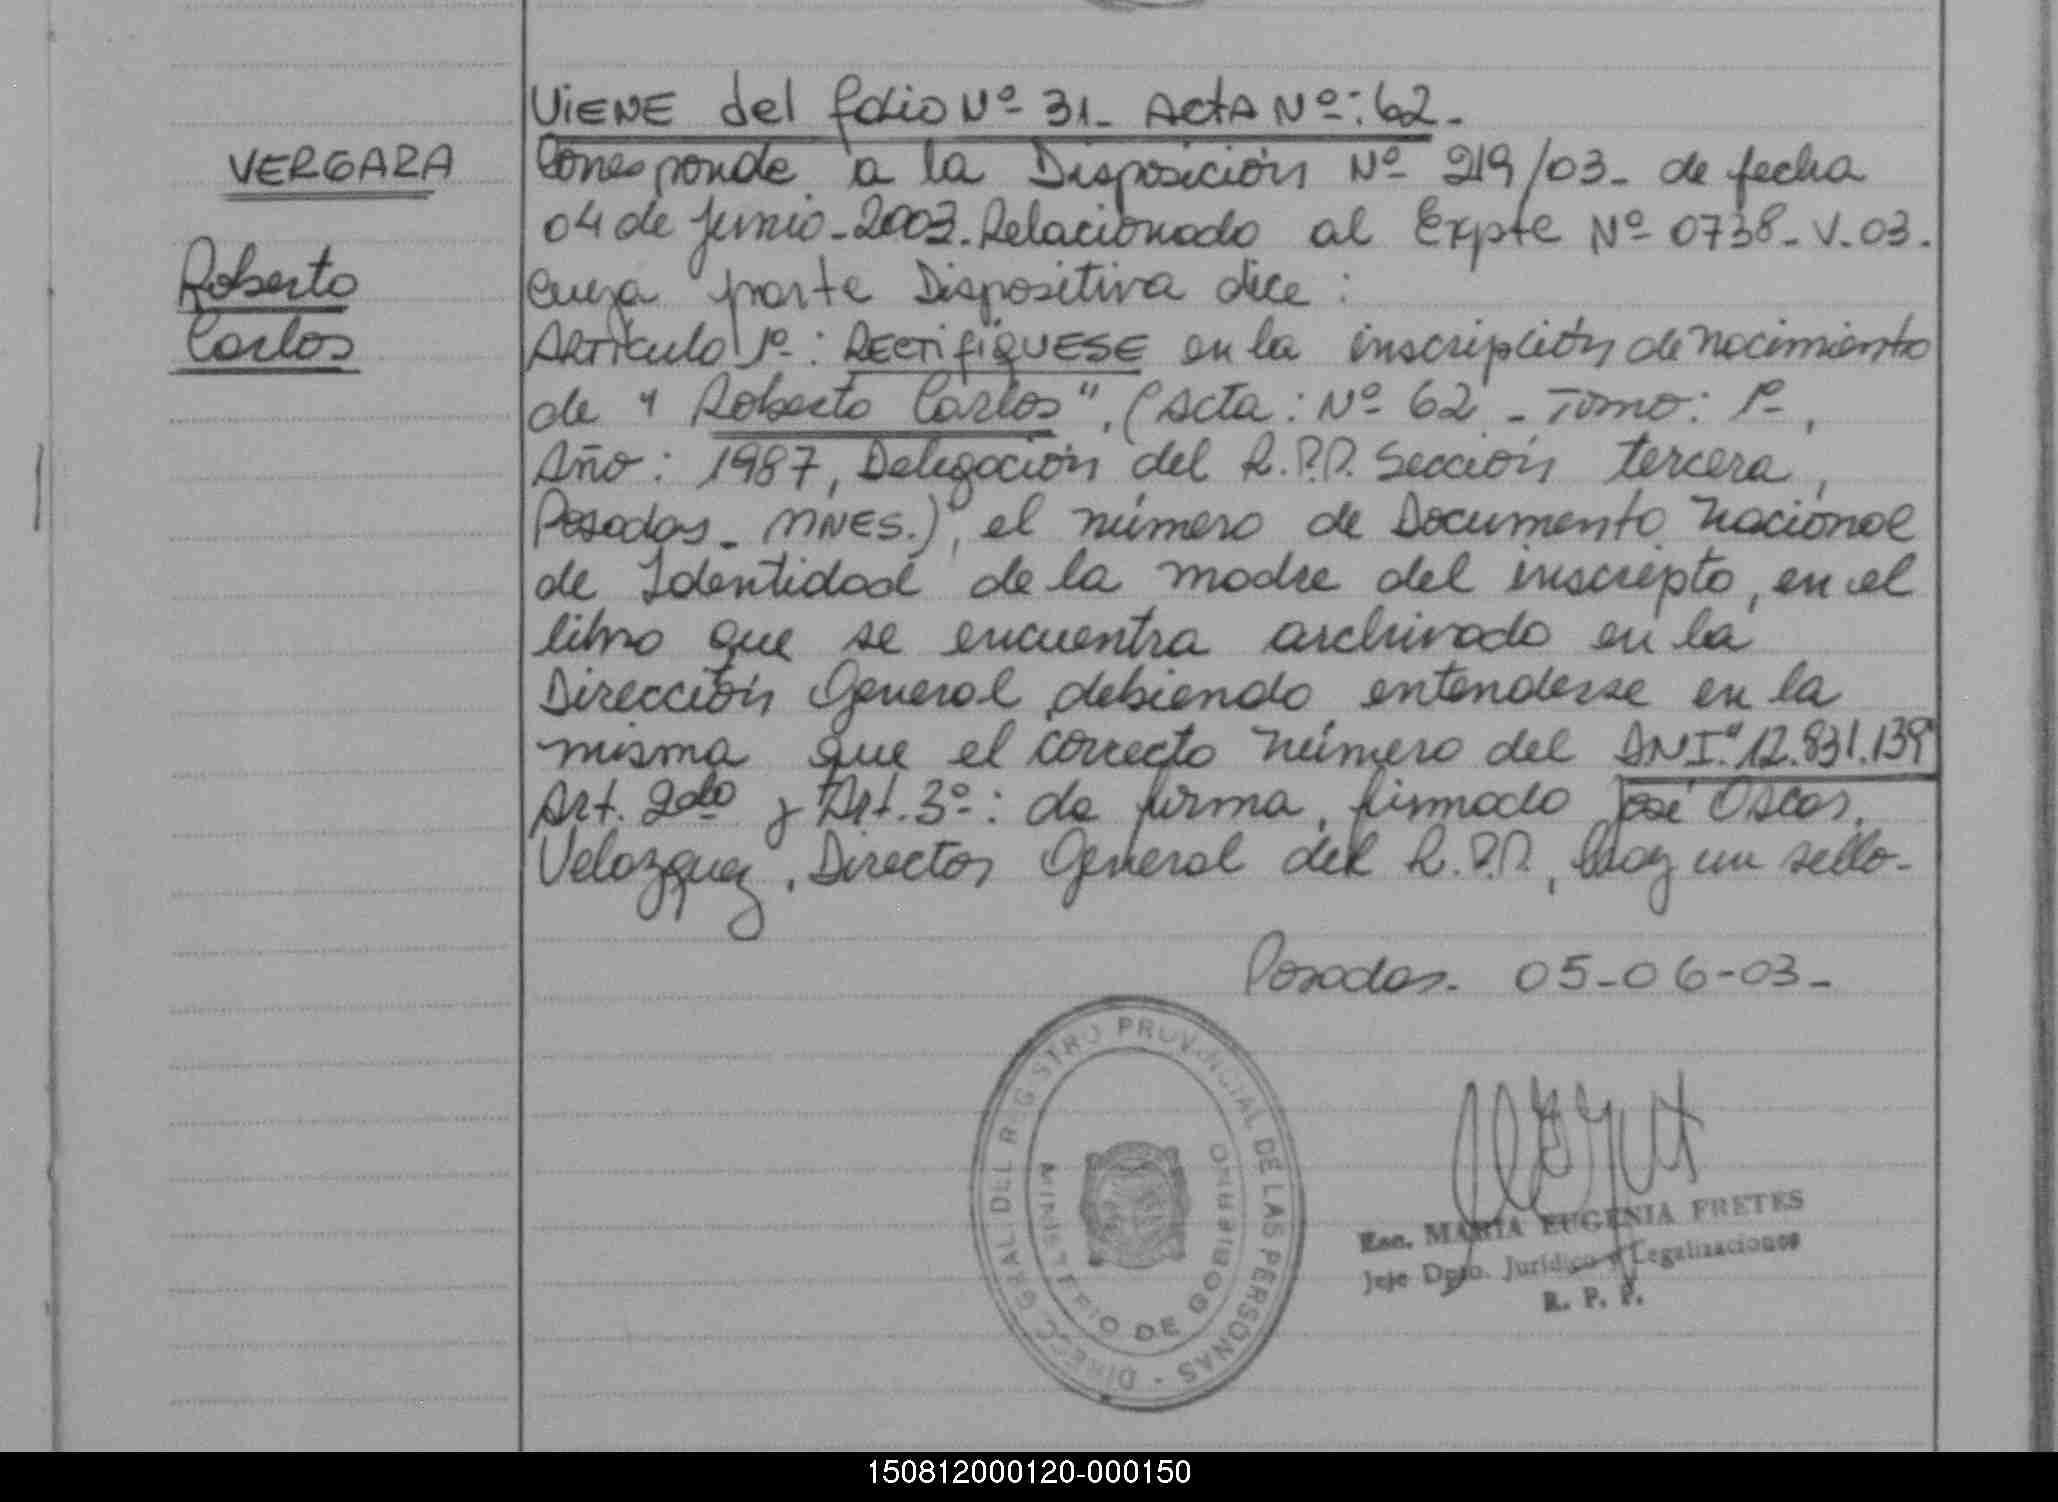 VERGARA
Roberto
Carlos
ViENE del folio Nº 31- ActA Nº: 62-
Corresponde a la Disposición Nº 219/03- de fecha
04 de Junio-2003. Relacionado al Expte Nº 0738-V-03.
cuya parte Dispositiva dice:
Artículo 1º: RECTifiQUESE en la inscripción de nacimiento
de "Roberto Carlos", (Acta: Nº 62 - Tomo: 1º,
Año: 1987, Delegación del R.P.P. Sección tercera,
Posadas- MNES.), el número de Documento Nacional
de Identidad de la madre del inscripto, en el
libro que se encuentra archivado en la
Dirección General, debiendo entenderse en la
misma que el correcto número del DNI."12.831.139"
Art. 2do y Art. 3º: de forma, firmado José Oscar
Velazquez, Director General del R.P.P, hay un sello-
Posadas- 05-06-03-
DIRECC. GRAL. DEL REGISTRO PROVINCIAL DE LAS PERSONAS -
MINISTERIO DE GOBIERNO
Esc. MARIA EUGENIA FRETES
Jefe Dpto. Jurídico y Legalizaciones
R. P. P.
150812000120-000150